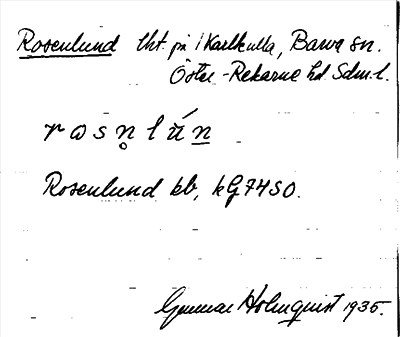 Rosenlund tht. på /Karlkulla, Barva sn.
Öster-Rekarne hd Sdm.l.
rosn̥lún
Rosenlund kb, kG74SO.
Gunnar Holmquist 1935.